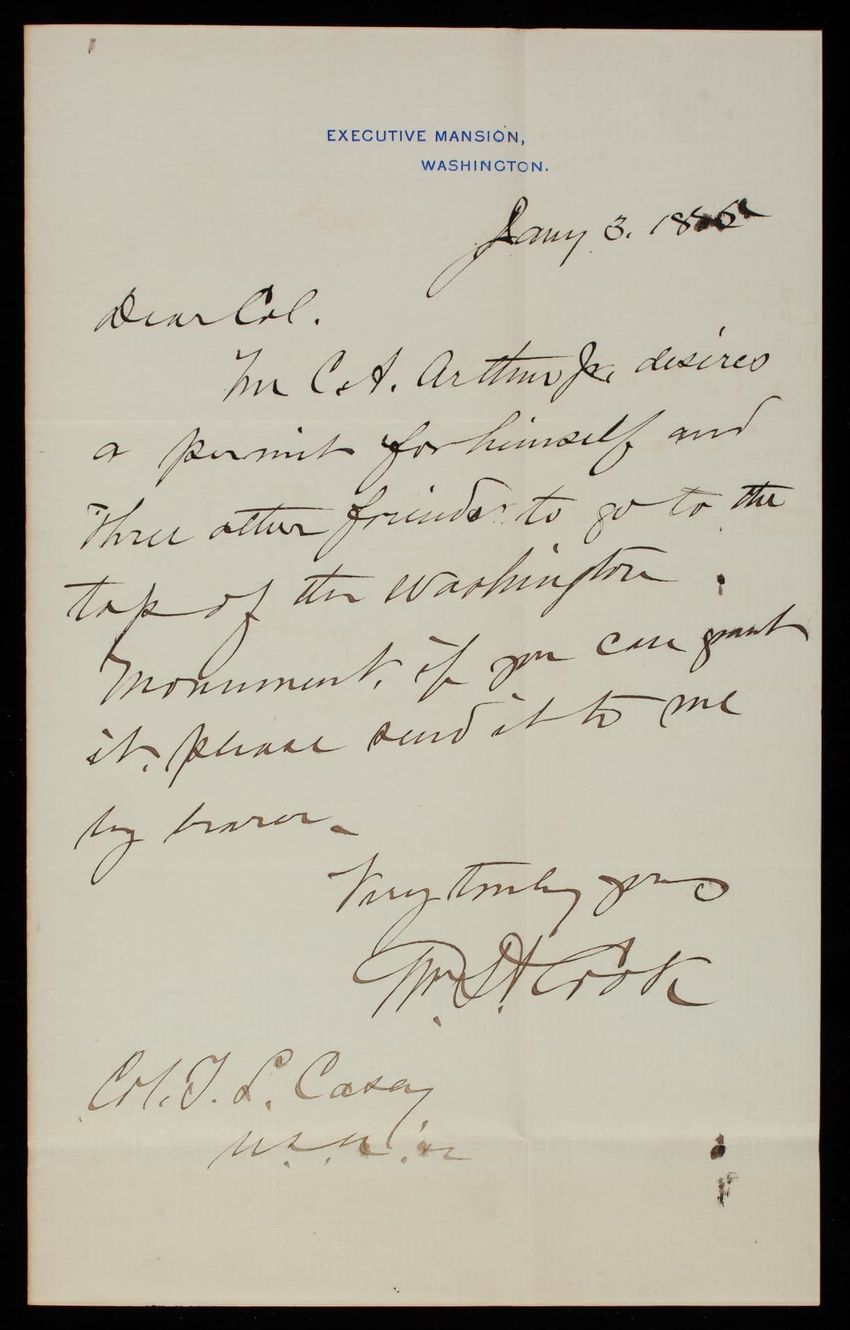 EXECUTIVE MANSION,
WASHINGTON.
Jany 3. 1885
Dear Col.
Mr C. A. Arthur Jr. desires
a permit for himself and
three other friends to go to the
top of the Washington
Monument, if you can grant
it, please send it to me
by bearer.
Very truly yours
Wm. H. Crook
Col. T. L. Casey
U.S.A.